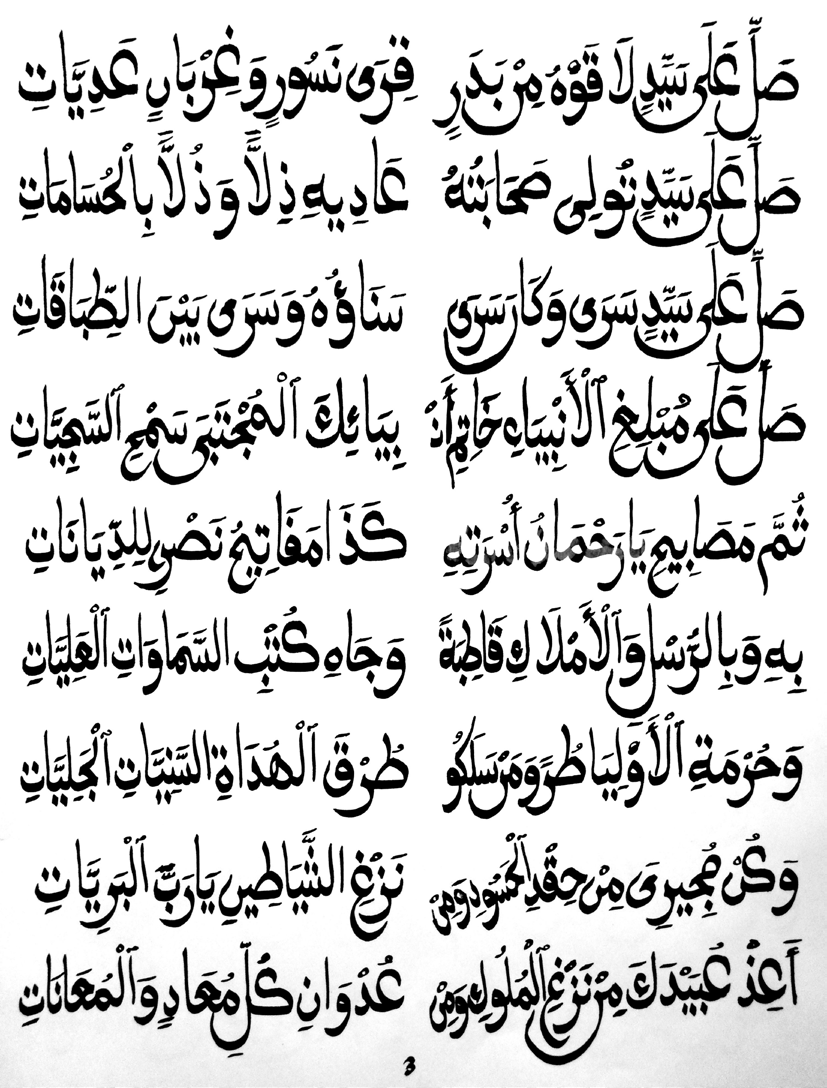 صَلِّ عَلَى سَيِّدٍ لَا قَوْهُ مِنْ بَدَرٍ قِرَى نَسُورٍ وَغِرْبَانٍ عَدِيَّاتِ
صَلِّ عَلَى سَيِّدٍ تُولِى صَحَابَتُهُ عَادِيهِ ذِلًّا وَذُلًّا بِالْحُسَامَاتِ
صَلِّ عَلَى سَيِّدٍ سَرَى وَكَارَسَرَى سَنَاؤُهُ وَسَرَى بَيْنَ الطِّبَاقَاتِ
صَلِّ عَلَى مُبْلِغِ الْأَنْبِيَاءِ خَاتِمِ أَنْ بِيَائِكَ الْمُجْتَبَى سَمْحِ السَّجِيَّاتِ
ثُمَّ مَصَابِيحِ يَا رَحْمَانُ أُسْرَتِهِ كَذَا مَفَاتِيحُ نَصْرٍ لِلدِّيَانَاتِ
بِهِ وَبِالرُّسْلِ وَالْأَمْلَاكِ قَاطِبَةً وَجَاهِ كُتْبِ السَّمَاوَاتِ الْعَلِيَّاتِ
وَحُرْمَةِ الْأَوْلِيَا طُرًّا وَمَنْ سَلَكُو طُرْقَ الْهُدَاةِ السَّنِيَّاتِ الْجَلِيَّاتِ
وَكُنْ مُجِيرِى مِنْ حِقْدِ الْحَسُودِ وَمِنْ نَزْغِ الشَّيَاطِينِ يَا رَبَّ الْبَرِيَّاتِ
أَعِذْ عُبَيْدَكَ مِنْ نَزْغِ الْمُلُوكِ وَمِنْ عُدْوَانِ كُلِّ مُعَادٍ وَالْمُعَانَاتِ
3